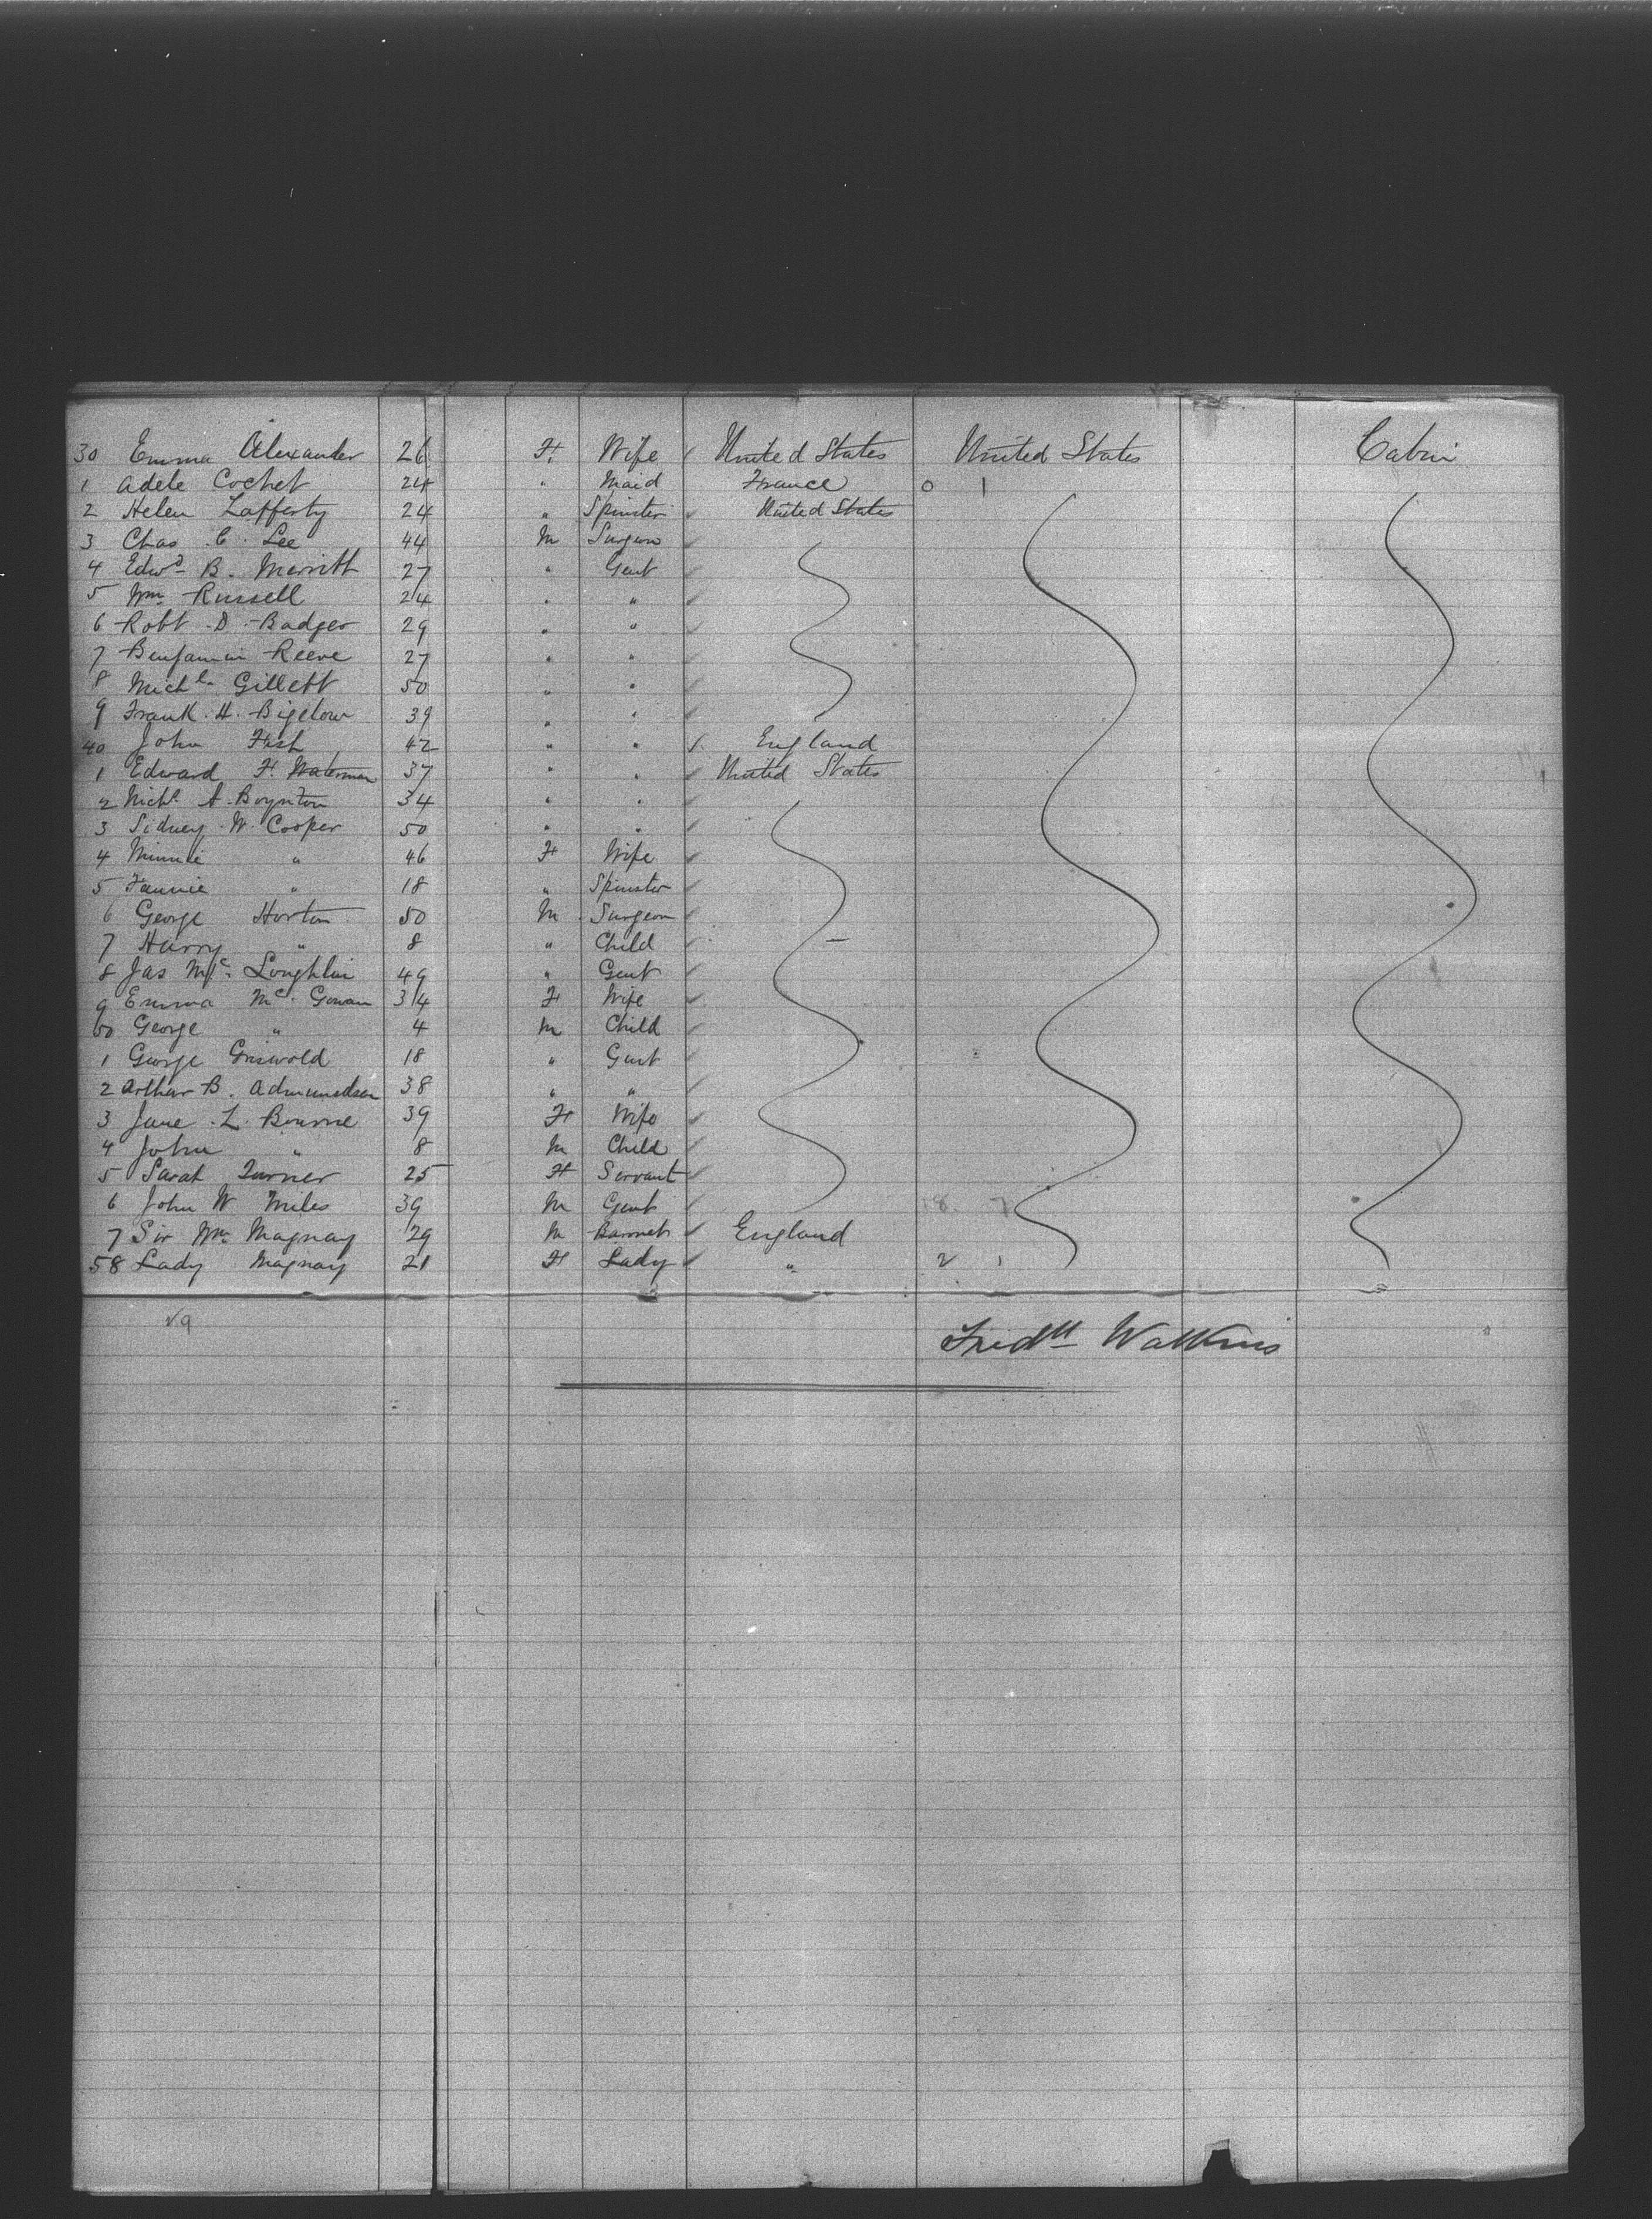 30 Emma Alexander 26 F. Wife United States United States Cabin
1 Adele Cochet 24 " Maid France 0 1
2 Helen Lafferty 24 " Spinster United States
3 Chas C. Lee 44 M Surgeon
4 Edwd B. Merritt 27 " Gent
5 Wm Russell 24 " "
6 Robt D. Badger 29 " "
7 Benjamin Reeve 27 " "
8 Michl Gillett 50 " "
9 Frank H. Bigelow 39 " "
40 John Fish 42 " " England
1 Edward F. Waterman 37 " " United States
2 Nichs A. Boynton 34 " "
3 Sidney W. Cooper 50 " "
4 Minnie " 46 F Wife
5 Fannie " 18 " Spinster
6 George Horton 50 M Surgeon
7 Harry " 8 " Child
8 Jas Mc Loughlin 49 " Gent
9 Emma Mc Gowan 34 F Wife
50 George " 4 M Child
1 George Griswold 18 " Gent
2 Arthur B. Admundsen 38 " "
3 Jane L. Bourne 39 F Wife
4 John " 8 M Child
5 Sarah Turner 25 F Servant
6 John W Miles 39 M Gent 18 7
7 Sir Wm Magnay 29 M Baronet England
58 Lady Magnay 21 F Lady " 2 1
Fredk Watkins